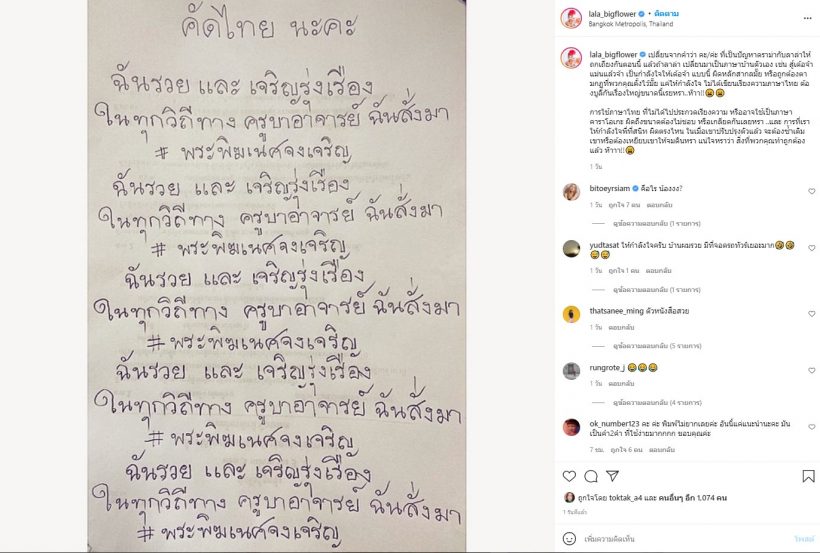 คัดไทย นะคะ
ฉันรวย และ เจริญรุ่งเรือง
ในทุกวิถีทาง ครูบาอาจารย์ ฉันสั่งมา
# พระพิฆเนศจงเจริญ
ฉันรวย และ เจริญรุ่งเรือง
ในทุกวิถีทาง ครูบาอาจารย์ ฉันสั่งมา
# พระพิฆเนศจงเจริญ
ฉันรวย และ เจริญรุ่งเรือง
ในทุกวิถีทาง ครูบาอาจารย์ ฉันสั่งมา
# พระพิฆเนศจงเจริญ
ฉันรวย และ เจริญรุ่งเรือง
ในทุกวิถีทาง ครูบาอาจารย์ ฉันสั่งมา
# พระพิฆเนศจงเจริญ
ฉันรวย และ เจริญรุ่งเรือง
ในทุกวิถีทาง ครูบาอาจารย์ ฉันสั่งมา
# พระพิฆเนศจงเจริญ
lala_bigflower • ติดตาม
Bangkok Metropolis, Thailand
lala_bigflower เปลี่ยนจากคำว่า คะ/ค่ะ ที่เป็นปัญหาดราม่ากับลาล่าให้
ถกเถียงกันตอนนี้ แล้วถ้าลาล่า เปลี่ยนมาเป็นภาษาบ้านตัวเอง เช่น สู้เด้อจ้า
แม่นแล้วจ้า เป็นกำลังใจให้เด้อจ้า แบบนี้ ผิดหลักสากลมั้ย หรือถูกต้องตา
มกฎที่พวกคุณตั้งไว้มั้ย แค่ให้กำลังใจ ไม่ได้เขียนเรียงความภาษาไทย ต้อ
งบูลี่กันเรื่องใหญ่ขนาดนี้เรยหรา..ห๊าา!!😩😩
การใช้ภาษาไทย ที่ไม่ได้ไปประกวดเรียงความ หรืออาจใช้เป็นภาษา
คาราโอเกะ ผิดถึงขนาดต้องไม่ชอบ หรือเกลียดกันเลยหรา ..และ การที่เรา
ให้กำลังใจพี่ที่สนิท ผิดตรงไหน ในเมื่อเขาปรับปรุงตัวแล้ว จะต้องซ้ำเติม
เขาหรือต้องเหยียบเขาให้จมดินหรา แน่ใจหราว่า สิ่งที่พวกคุณทำถูกต้อง
แล้ว ห๊าาา!!😩
1 วัน
bitoeyrsiam คือไร น้องงง?
1 วัน ถูกใจ 7 คน ตอบกลับ
ดูข้อความตอบกลับ (1 รายการ)
yudtasat ให้กำลังใจครับ บ้านผมรวย มีที่จอดรถทัวร์เยอะมาก🤣🤣
😅😅
1 วัน ถูกใจ 1 คน ตอบกลับ
ดูข้อความตอบกลับ (1 รายการ)
thatsanee_ming ตัวหนังสือสวย
1 วัน ตอบกลับ
ดูข้อความตอบกลับ (5 รายการ)
rungrote_j 😂😂😂
1 วัน ตอบกลับ
ดูข้อความตอบกลับ (4 รายการ)
ok_number123 คะ ค่ะ พิมพ์ไม่ยากเลยค่ะ อันนี้แค่แนะนำนะคะ มัน
เป็นคำ2คำ ที่ใช้ง่ายมากกกก ขอบคุณค่ะ
7 ชม. ถูกใจ 6 คน ตอบกลับ
ถูกใจโดย toktak_a4 และ คนอื่นๆ อีก 1,074 คน
1 วันที่แล้ว
เพิ่มความคิดเห็น...
โพสต์